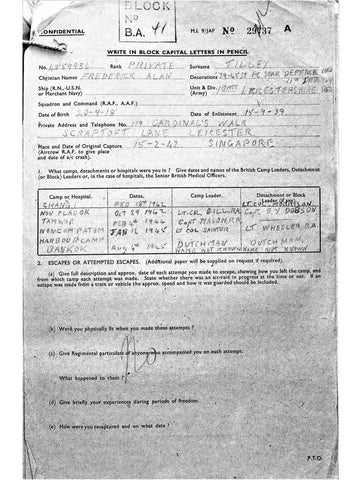 BLOCK
Nº
B.A. 41
CONFIDENTIAL
M.I. 9/JAP Nº 29737 A
WRITE IN BLOCK CAPITAL LETTERS IN PENCIL
No. Rank PRIVATE Surname TILLEY
Christian Names FREDERICK ALAN Decorations 39-45 ST PC STAR DEFENCE
Ship (R.N., U.S.N. or Merchant Navy) Unit & Div. (Army) LEICESTERSHIRE
Squadron and Command (R.A.F., A.A.F.)
Date of Birth 20-9-18 Date of Enlistment 15-9-39
Private Address and Telephone No. 119 CARDINAL'S WALK
SCRAPTOFT LANE LEICESTER
Place and Date of Original Capture 15-2-42 SINGAPORE
(Aircrew R.A.F. to give place
and date of a/c crash).
1. What camps, detachments or hospitals were you in? Give dates and names of the British Camp Leaders, Detachment
(or Block) Leaders or, in the case of hospitals, the Senior British Medical Officers.
Camp or Hospital. Dates. Camp Leader. Detachment or Block Leader (if any)
CHANGI FEB 1942 LT.COL
NON PLADOK OCT 29 1942 LT.COL GILL.R.A. CAPT. E.Y DOBSON
FEB 1944 CAPT MASON R.A.
JAN 12 1945 LT COL LT WHEELER R.A.
HARBOUR CAMP DUTCHMAN DUTCHMAN
BANKOK AUG 1945 NAME NOT KNOWN NAME NOT KNOWN
2. ESCAPES OR ATTEMPTED ESCAPES. (Additional paper will be supplied on request if required).
(a) Give full description and approx. date of each attempt you made to escape, showing how you left the camp, and
from which camp each attempt was made. State whether there was an air-raid in progress at the time or not. If an
escape was made from a train or vehicle the approx. speed and how it was guarded should be included.
(b) Were you physically fit when you made these attempts?
(c) Give Regimental particulars of anyone who accompanied you on each attempt.
No
What happened to them?
(d) Give briefly your experiences during periods of freedom.
(e) How were you recaptured and on what date?
P.T.O.